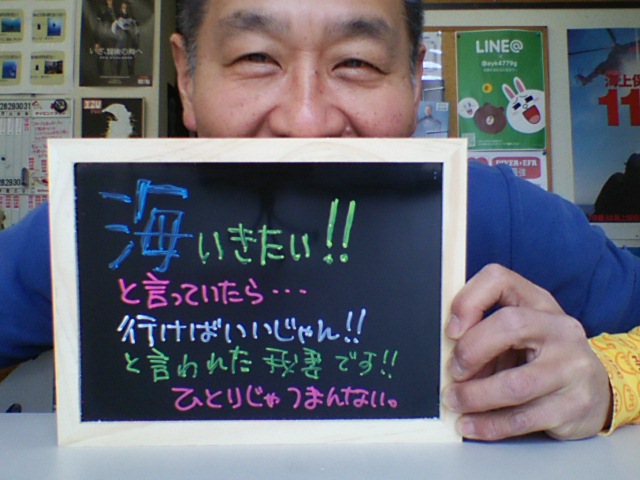 海いきたい!!
と言っていたら・・・
行けばいいじゃん!!
と言われた我妻です!!
ひとりじゃつまんない。
LINE@
@eyk4779g
海上保
11
DIVER+EFR
IZU
いざ、最後の海へ